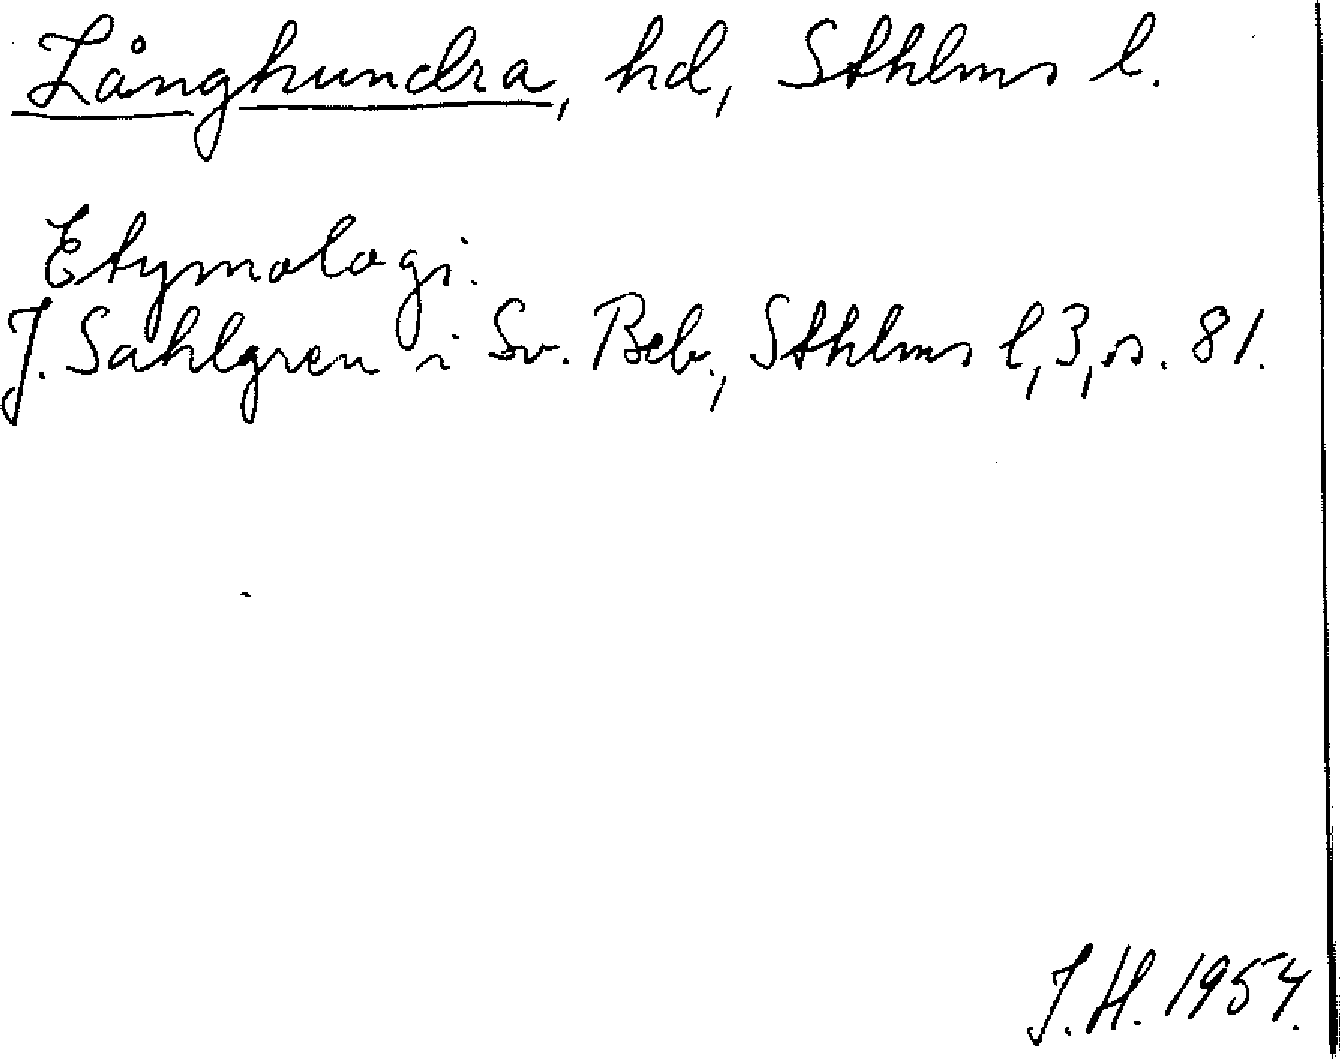 Långhundra, hd, Sthlms l.
Etymologi.
J. Sahlgren i Sv. Beb., Sthlms l, 3, s. 81.
J. H. 1954.